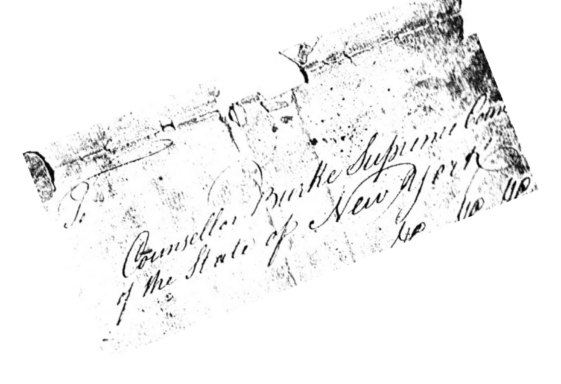 To
Counsellor Burke Supreme Cou
of the State of New York